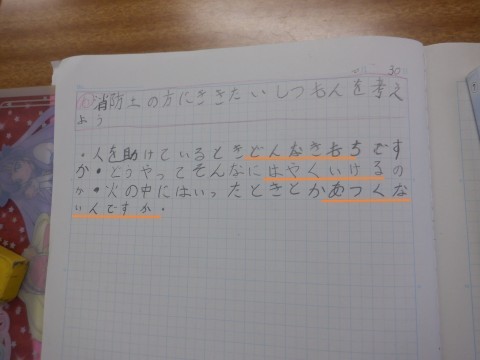 30
め 消防士の方にききたいしつもんを考え
よう
・人を助けているときどんなきもちです
か・どうやってそんなにはやくいけるの
か・火の中にはいったときとかあつくな
いんですか・